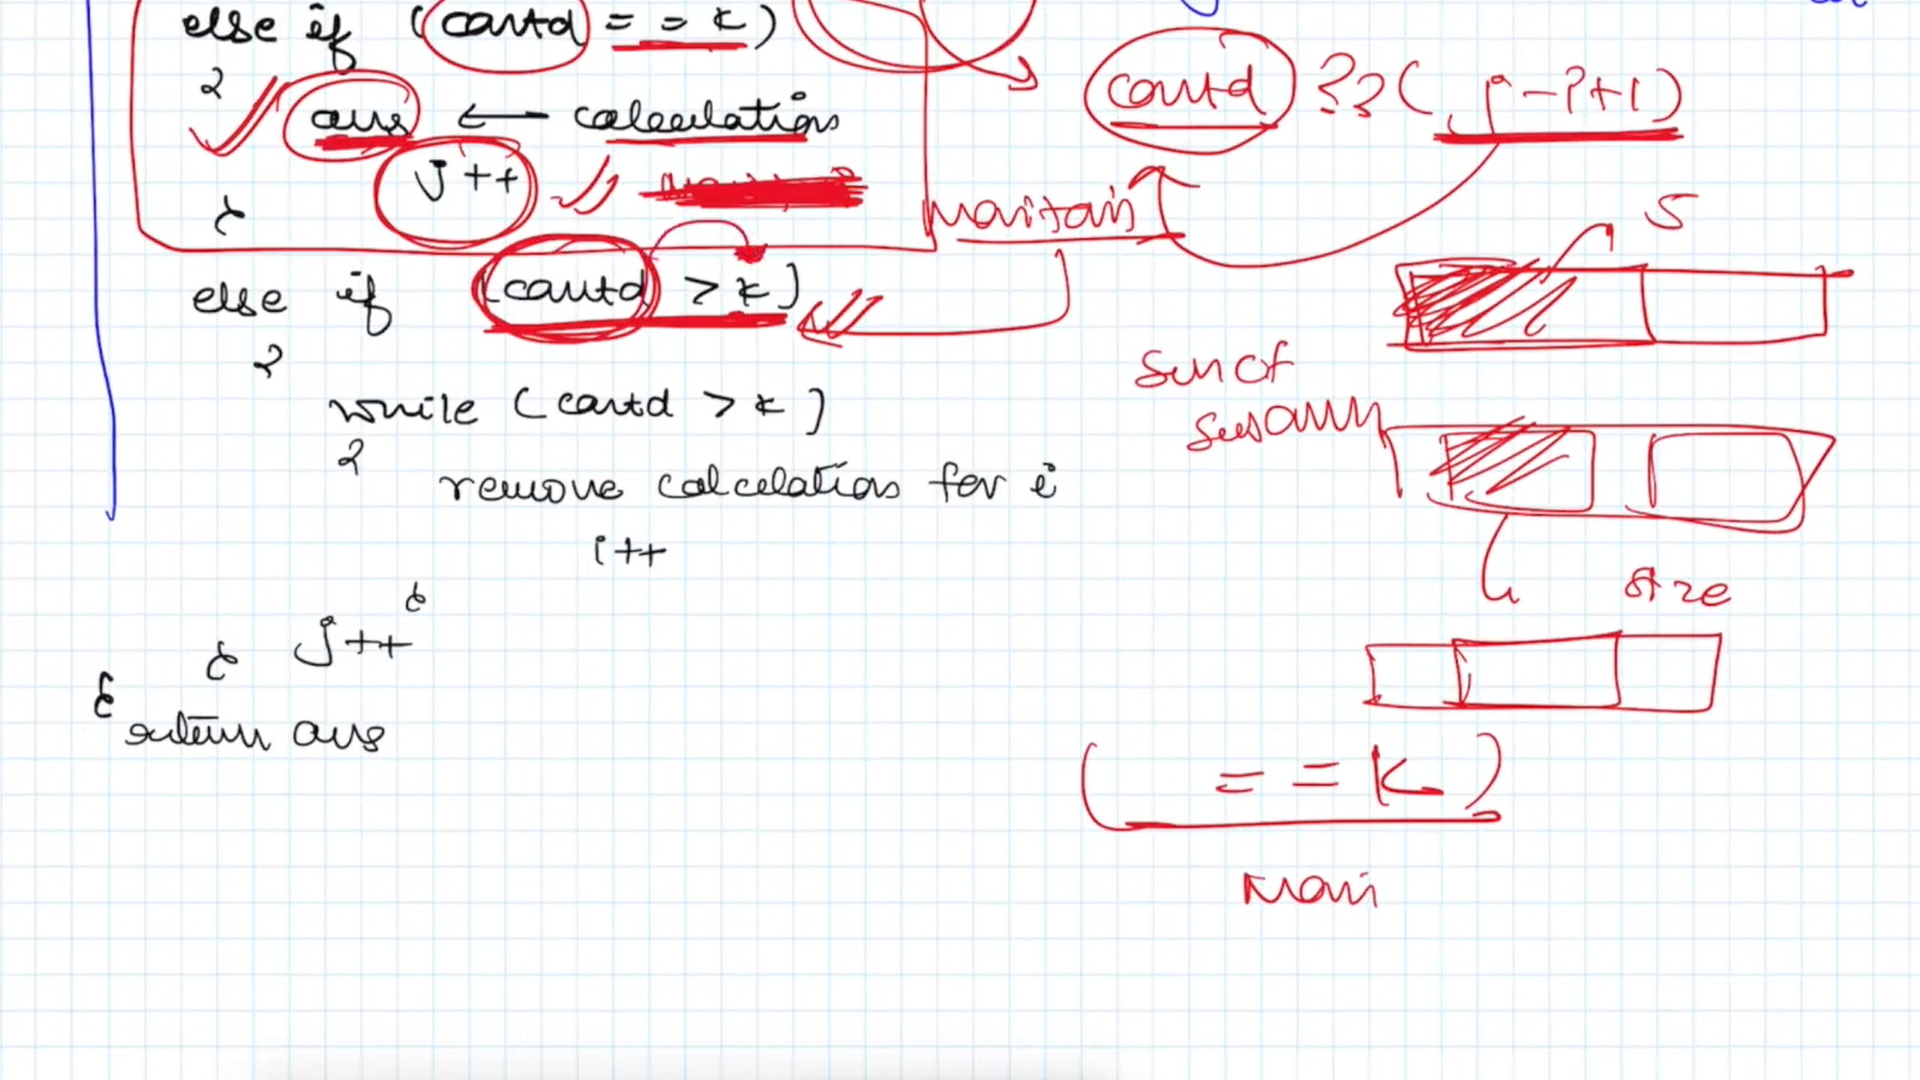 else if (contd == k)
{
ans ← calculation
j++
}
else if (contd > k)
{
while (contd > k)
{
remove calculation for i
i++
}
} j++
}
return ans
contd ??( j-i+1)
Maintain
5
Sum of
subarray
size
( == k)
Main